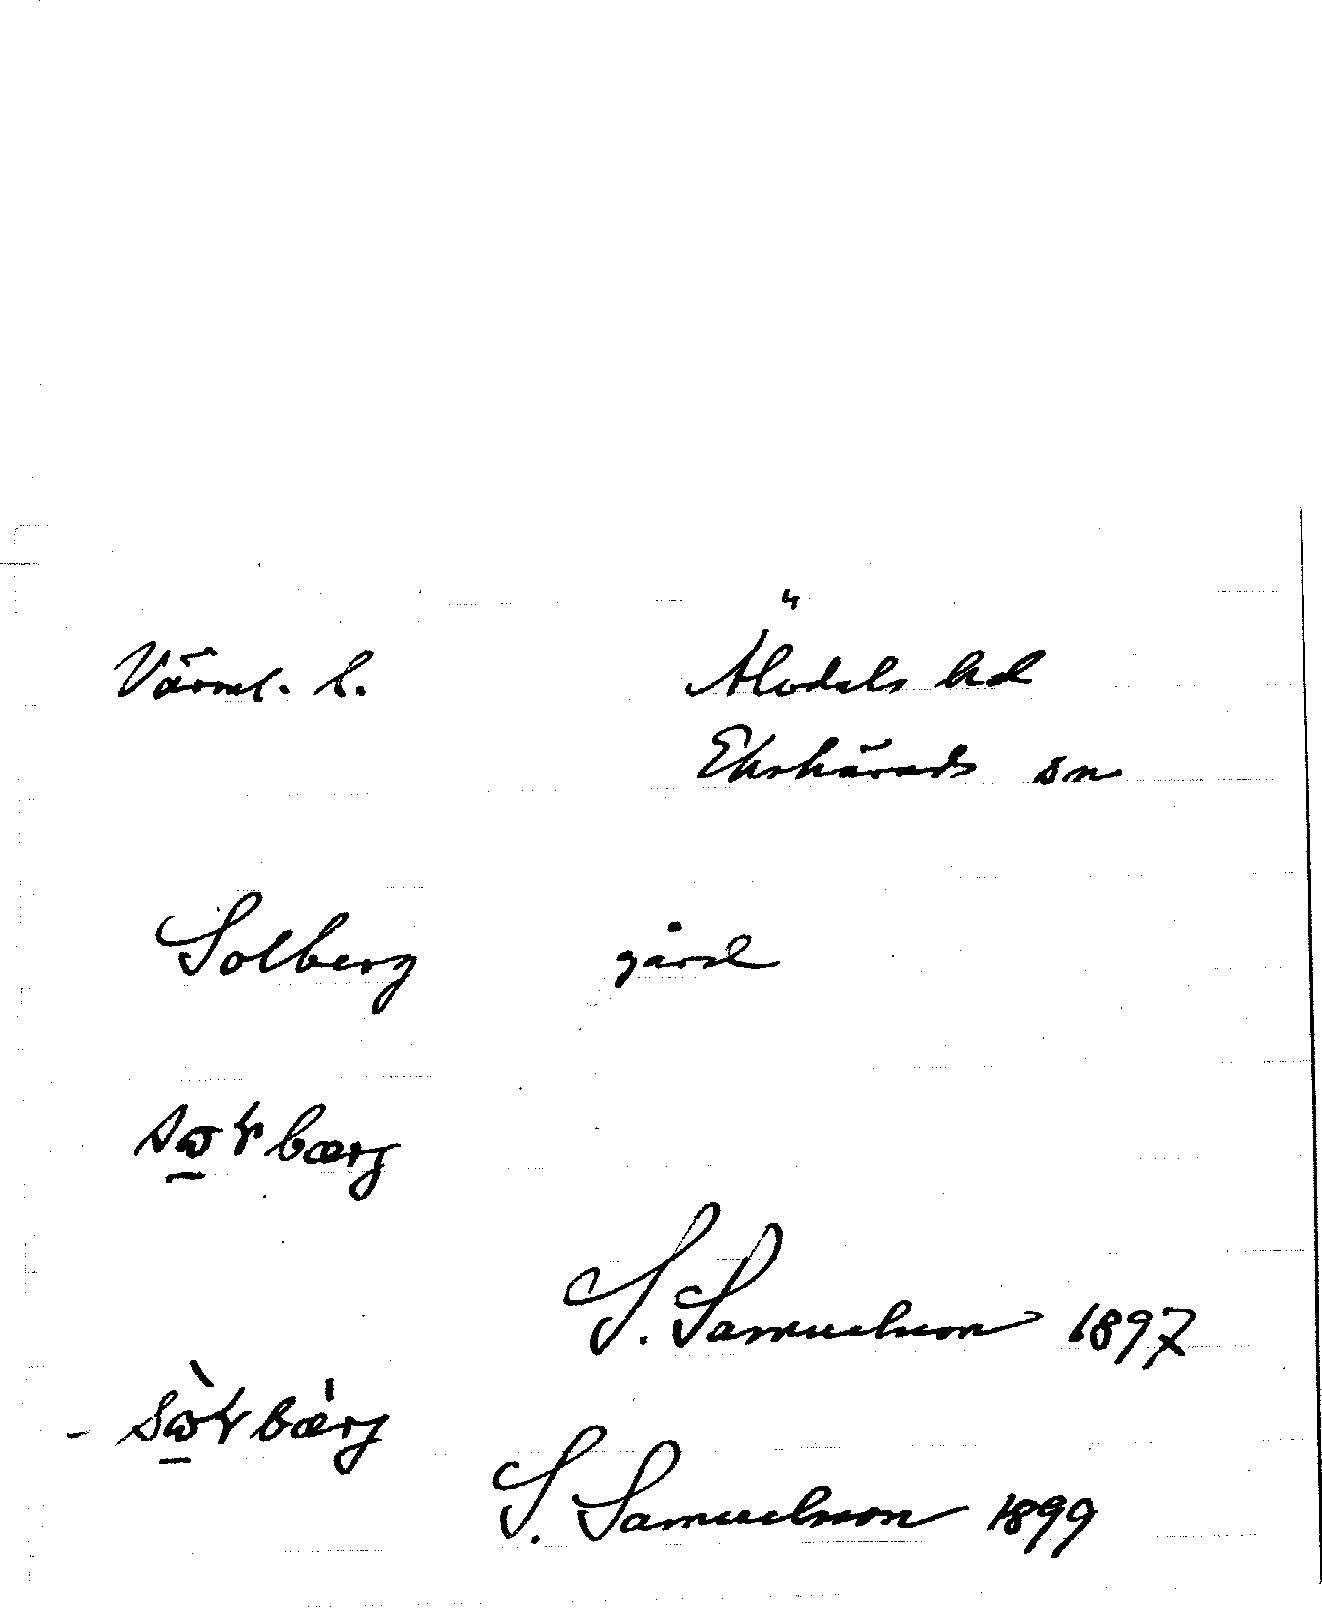 Värml. l. Älvdals hd
Ekshärads sn
Solberg gård
bærj
S. Samuelsson 1897
bærj
S. Samuelsson 1899